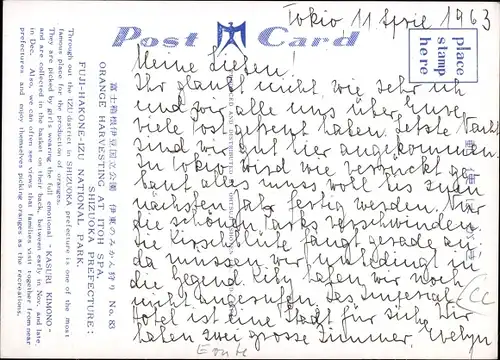 Tokio 11 April 1963
Post Card
place
stamp
here
Meine Lieben!
Ihr glaubt nicht wie sehr ich
und wir alle uns über Eure
viele Post gefreut haben. Letzte Nacht
sind wir gut hier angekommen.
In Tokio wird wie verrückt ge-
baut alles muss wegen
nächstes Jahr fertig werden. Nur
die verschwinden.
Die Kirschblüte fängt gerade an
da müssen wir unbedingt in
die Gegend. haben wir noch
nicht angerufen. Das Imperial
Hotel ist eine Stadt für sich. Wir
haben zwei grosse Zimmer. Evelyn
富士箱根伊豆国立公園 伊東のみかん狩り No. 83
ORANGE HARVESTING AT ITOH SPA.
SHIZUOKA PREFECTURE:
FUJI-HAKONE-IZU NATIONAL PARK.
Through out the IZU district SHIZUOKA prefecture is one of the most
famous place for the production of oranges.
They are picked by girls wearing the full emotional "KASURI KIMONO"
and are collected in the basket on their back between early in Nov. and late
in Dec. Also, we can often see views that families visit together from near
prefectures and enjoy themselves picking oranges as the recreations.